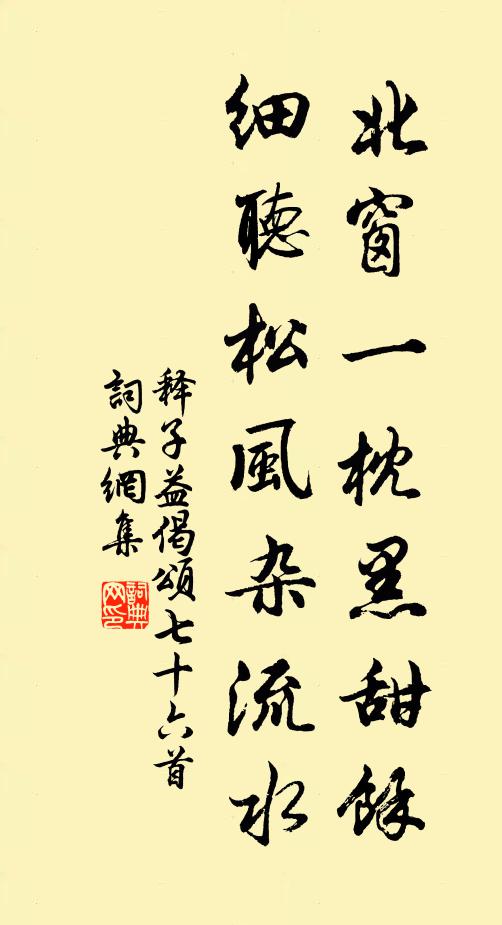 北窗一枕黑甜餘
細聽松風杂流水
释子益偈頌七十六首
詞典網集
詞典网印